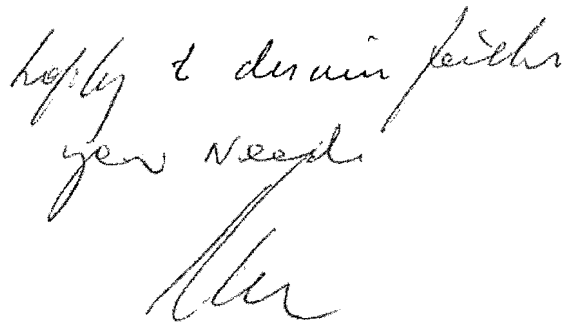 happy to discuss further
your needs